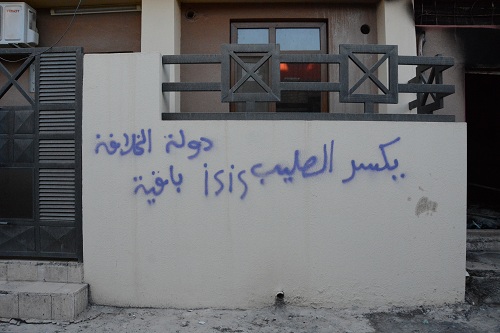 دولة الخلافة
بكسر الصليب isis باقية